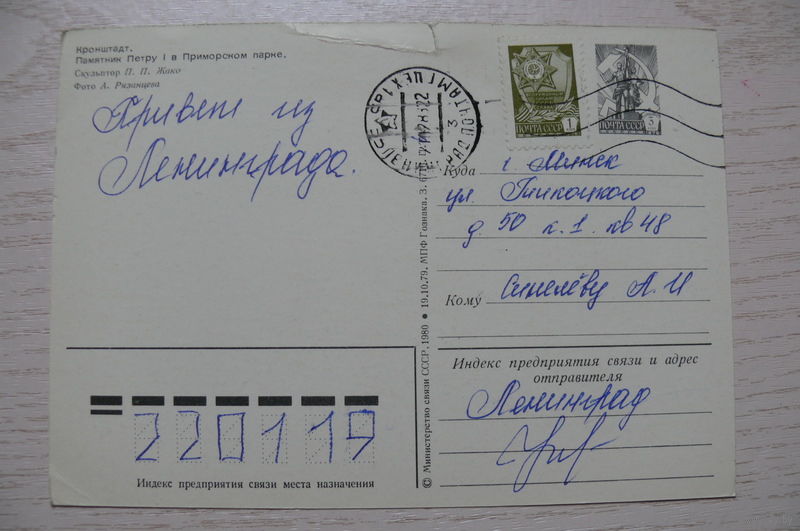 Кронштадт.
Памятник Петру I в Приморском парке.
Скульптор П. П. Жако
Фото А. Рязанцева
Привет из
Ленинграда.
ПОЧТА СССР 1
ПОЧТА СССР 3
Куда г. Минск
ул. Гинтовта
д. 50 к. 1. кв 48
Кому Синелёву А. И
© Министерство связи СССР, 1980 • 19.10.79. МПФ Гознака. З.
Индекс предприятия связи и адрес
отправителя
Ленинград
220119
Индекс предприятия связи места назначения